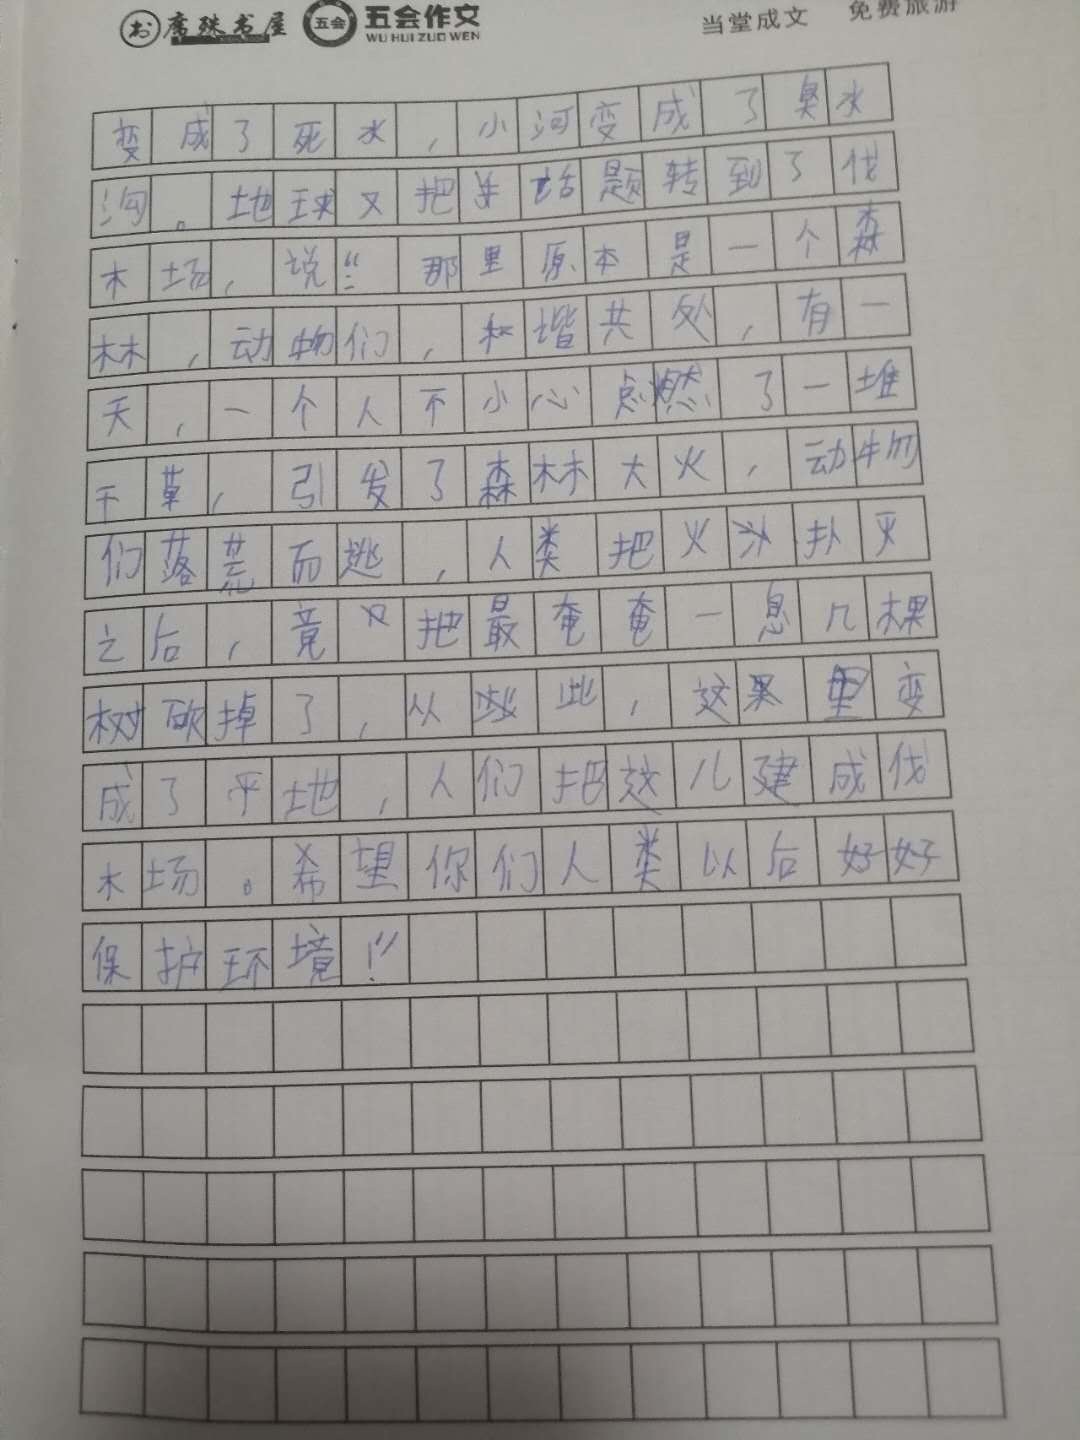 席殊书屋 五会 五会作文 当堂成文 免费旅游
WU HUI ZUO WEN
变成了死水，小河变成了臭水
沟。地球又把话题转到了伐
木场，说：“那里原本是一个森
林，动物们，和谐共处，有一
天，一个人不小心点燃了一堆
干草，引发了森林大火，动物
们落荒而逃，人类把火扑灭
之后，竟又把最奄奄一息几棵
树砍掉了，从此，这里变
成了平地，人们把这儿建成伐
木场。希望你们人类以后好好
保护环境！”